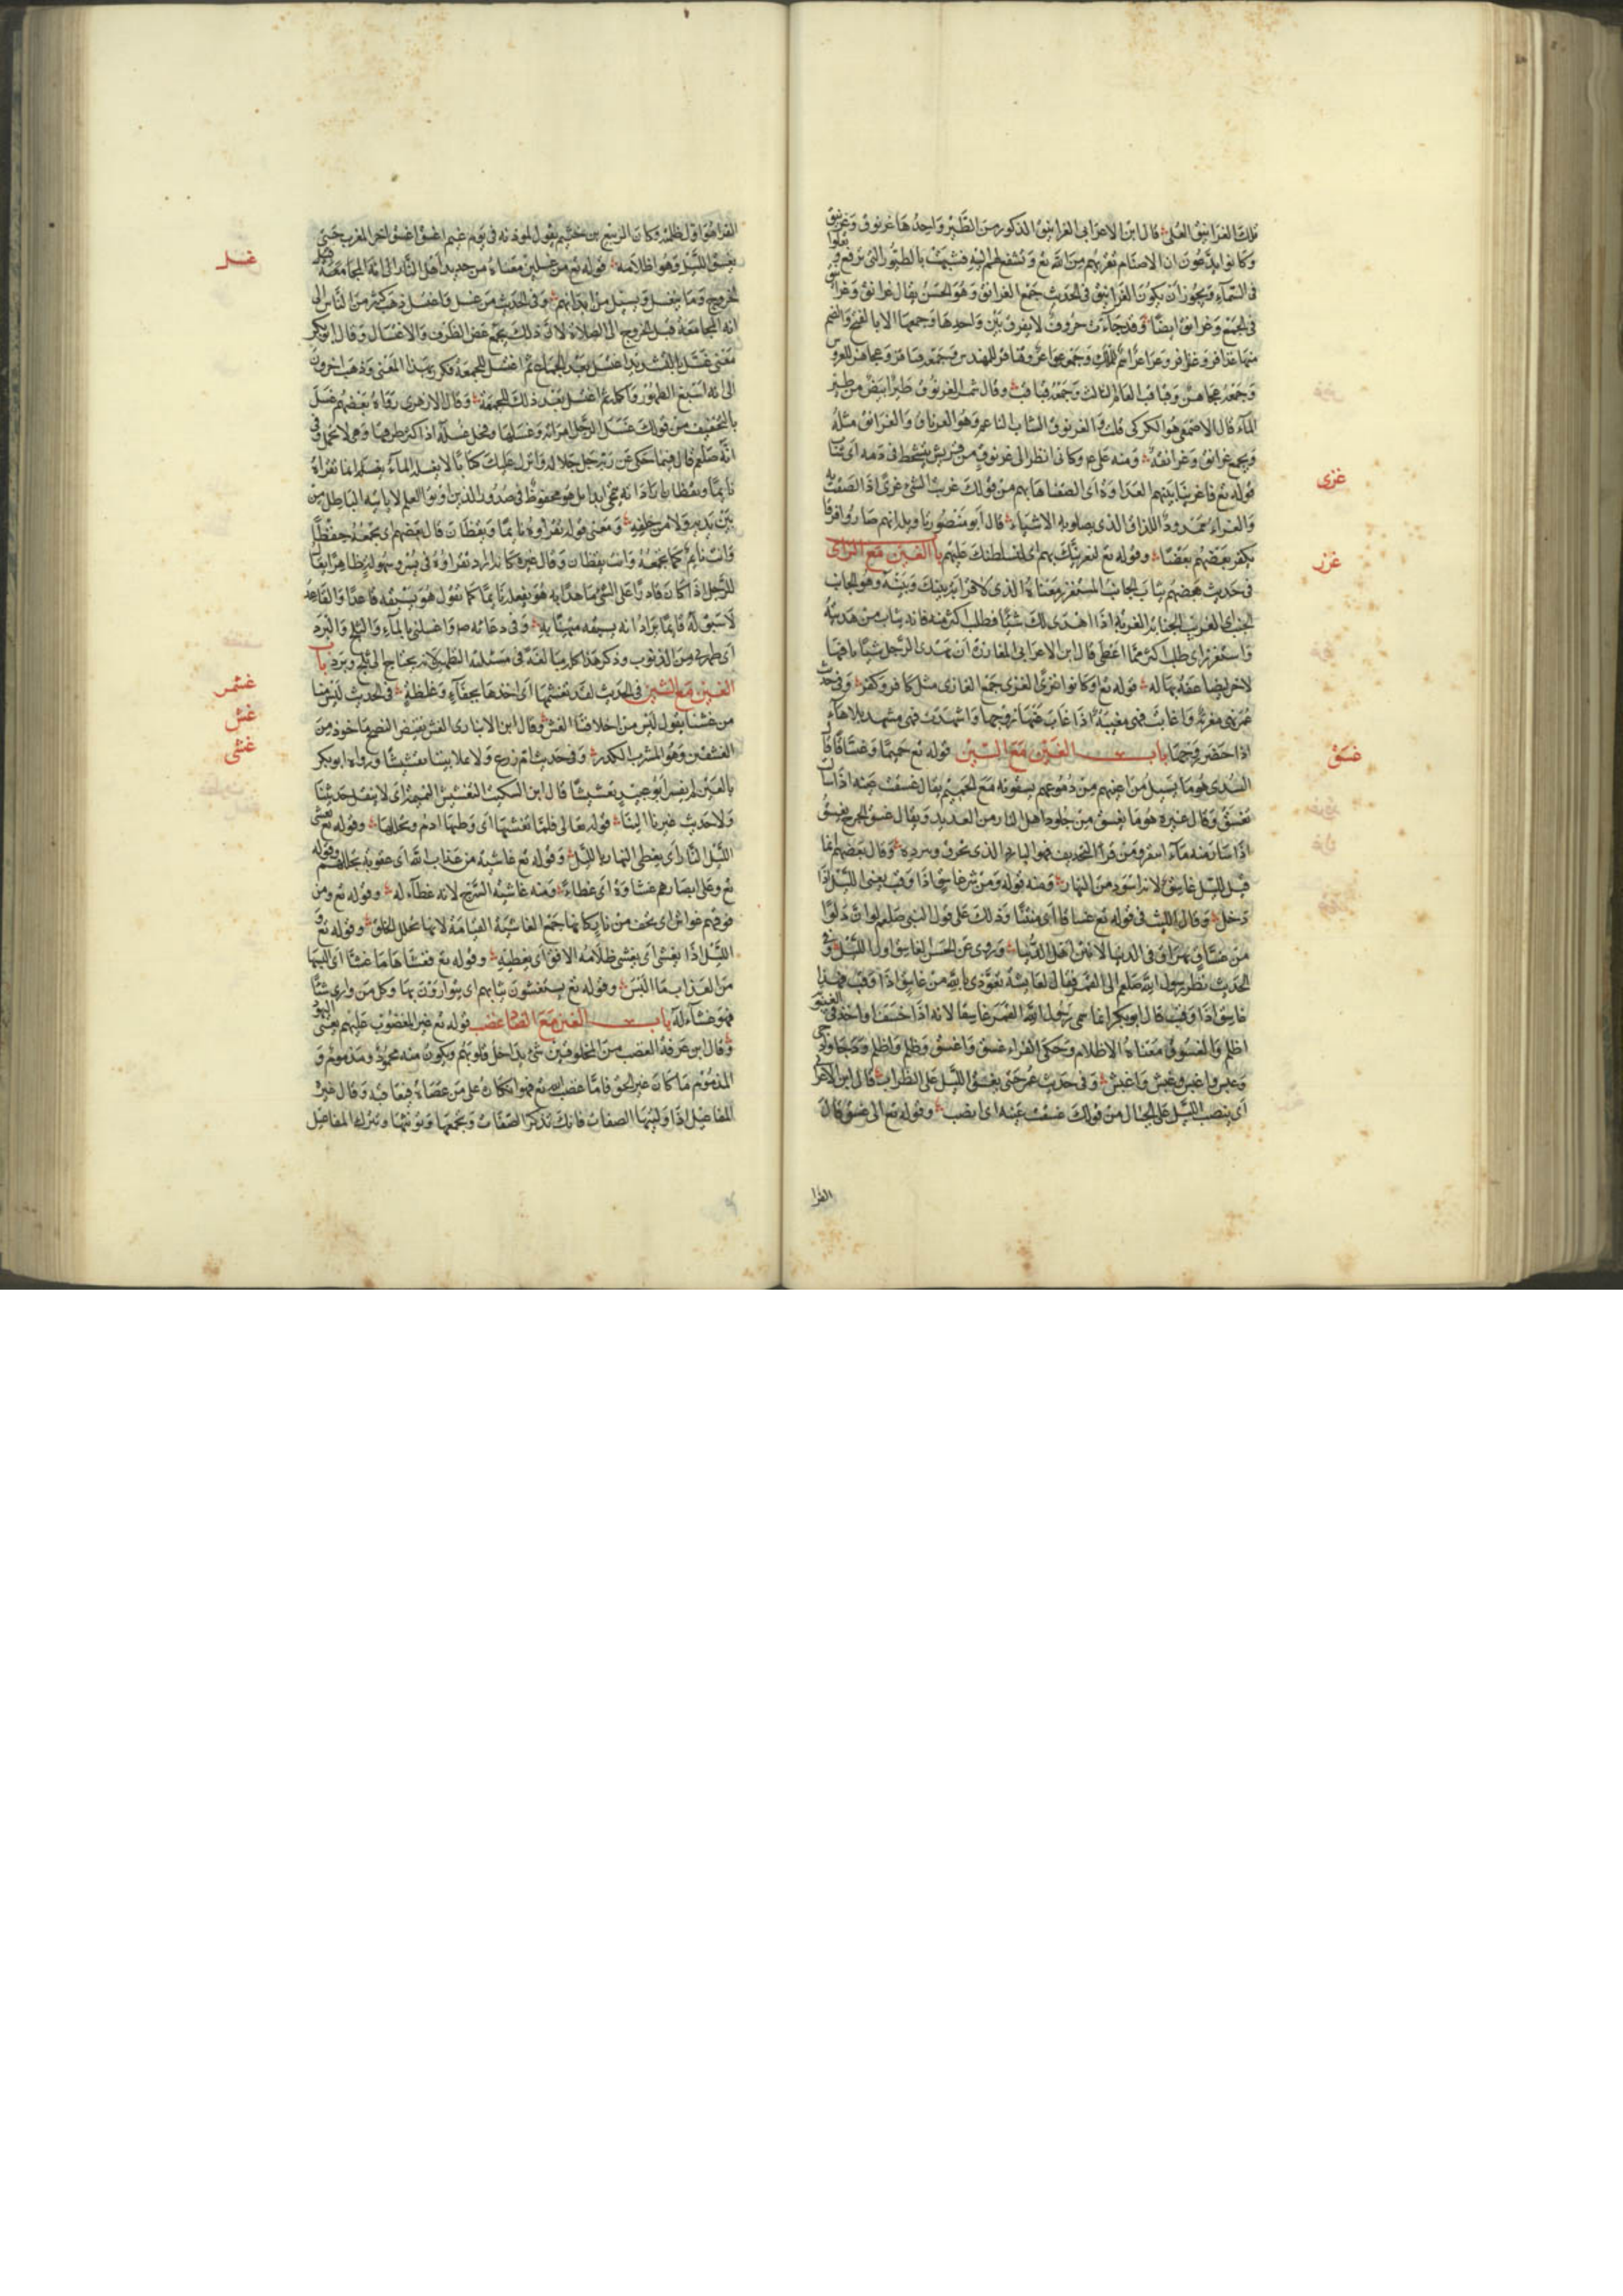 تلك الغرانيق العلى قال ابن الاعرابي الغرانيق الذكور من الطير واحدها غرنوق وغرنيق
وكانوا يدعون ان الاصنام تقربهم من الله تع وتشفع لهم اليه فشبهت بالطيور التي ترفع
في السماء ويجوز ان يكون الغرانيق في الحديث جمع الغرانق وهو الحسن يقال غرانق وغرانق
في الجمع وغرانق ايضا وقد جاءت حروف لا يفرق بين واحدها وجمعها الا بالفتح والضم
منها عذافر وعذافر
وجمعه
الماء قال الاصمعي هو الكركي قلت والغرنوق الشاب الناعم وهو الغرانق والغرانق مثله
ويجمع غرانق وغرانقة ومنه على ع وكاني انظر الى غرنوق من قريش يتشحط في دمه اي شاب
قوله تع فاغرينا بينهم العداوة اي الصقناها بهم من قولك غريت الشيء غرى اذا الصقت به
والغراء ممدود اللزاق الذي يصلح به الاشياء قال ابو منصور تاويله انهم صاروا فرقا
يكفر بعضهم بعضا وقوله تع لنغرينك بهم اي لنسلطنك عليهم باب الغين مع الزاي
في حديث بعضهم يثاب الجانب المستغزر معناه الذي لا قرابة بينك وبينه وهو الجانب
الجنب اي الغريب الجنابة الغربة اذا اهدى لك شيئا فطلب اكثر منه فانه يثاب من هديته
واستغزر اي طلب اكثر مما اعطى قال ابن الاعرابي المغازرة ان يهدي الرجل شيئا تافها
لاخر ليضاعفه بها له قوله تع او كانوا غزى الغزى جمع الغازي مثل كافر وكفر وفي حديث
عمر مغزية وغاب فهي مغيبة اذا غاب عنها زوجها واشهدت فهي مشهد بلا هاء
اذا حضر زوجها باب الغين مع السين قوله تع حميما وغساقا قال
السدي هو ما يسيل من اعينهم من دموعهم يسقونه مع الحميم يقال غسقت عينه اذا سالت
تغسق وقال غيره هو ما يغسق من جلود اهل النار من الصديد ويقال غسق الجرح يغسق
اذا سال منه ماء اصفر ومن قرا بالتخفيف فهو البارد الذي يحرق ببرده وقال بعضهم انما
قيل لليل غاسق لانه ابرد من النهار ومنه قوله ومن شر غاسق اذا وقب يعني الليل اذا
دخل وقال الليث في قوله تع غساقا اي منتنا وذلك على قول النبي صلعم لو ان دلوا
من غساق يهراق في الدنيا لانتن اهل الدنيا وروى عن الحسن الغاسق اول الليل وفي
الحديث نظر رسول الله صلعم الى القمر فقال لعايشة تعوذي بالله من غاسق اذا وقب فهذا
غاسق اذا وقب قال ابو بكر انما سمى رسول الله القمر غاسقا لانه اذا خسف او اخذ في الغيبوبة
اظلم والغسوق معناه الاظلام وحكى الفراء غسق واغسق وظلم واظلم ودجا وادجى
وغبس واغبس وغبش واغبش وفي حديث عمر حتى يغسق الليل على الظراب قال ابن الاعرابي
اي ينصب الليل على الجبال من قولك غسقت عينه اي انصب وقوله تع الى غسق قال
الفرا
غرى
غزر
غسق
الفرا هو اول ظلمته وكان الربيع بن خثيم يقول لموذنه في يوم غيم اغسق اغسق اخر المغرب حتى
يغسق الليل وهو اظلامه قوله تع من غسلين معناه من صديد اهل النار
الخروج وما ينغسل ويسيل من ابدانهم وفي الحديث من غسل واغتسل ذهب كثير من الناس الى
انه المجامعة قبل الخروج الى الصلاة لان ذلك يجمع غض الطرف والاغتسال وقال ابو بكر
معنى غسل بالتشديد اغتسل بعد الجماع ثم اغتسل للجمعة فكرر بهذا المعنى وذهب اخرون
الى انه اسبغ الطهور واكمله ثم اغتسل بعد ذلك للجمعة وقال الازهري رواه بعضهم غسل
بالتخفيف من قولك غسل الرجل امراته وغسلها وفحل غسلة اذا اكثر طرقها وهي لا تحمل وفي
انه صلعم قال فيما حكى عن ربه جل جلاله وانزل عليك كتابا لا يغسله الماء يغسله انما تقراه
نايما ويقظان اراد انه لا يمحى ابدا بل هو محفوظ في صدور الذين اوتوا العلم لا ياتيه الباطل من
بين يديه ولا من خلفه ومعنى قوله تقراوه نايما ويقظان قال بعضهم اي تجمعه حفظا
وانت نايم كما تجمعه وانت يقظان وقال غيره كانه اراد تقراوه في يسر وسهولة ظاهرا يقال
للرجل اذا كان قادرا على الشيء ماهرا به هو يفعله نايما كما تقول هو يسبقه قاعدا والقاعد
لا سبق له قايما يراد انه يسبقه مستهينا به وفي دعائه ص واغسلني بالماء والثلج والبرد
اي طهرني من الذنوب وذكر هذا كله مبالغة في مسئلة التطهير لا انه يحتاج الى ثلج وبرد باب
الغين مع الشين في الحديث لقد تغشمرها اي اخذها بجفاء وغلظة في الحديث ليس منا
من غشنا يقول ليس من اخلاقنا الغش وقال ابن الانباري الغش نقيض النصح ماخوذ من
الغشش وهو المشرب الكدر وفي حديث ام زرع ولا تملا بيتنا تغشيشا ورواه ابو بكر
بالغين لم يفسر ابو عبيد تغشيشا قال ابن السكيت التغشيش النميمة اي لا ينقل حديثنا
ولا حديث غيرنا الينا قوله تعالى فلما تغشيها اي وطيها ادم وتجللها وقوله تع يغشى
الليل النهار اي يغطي النهار بالليل وقوله تع غاشية من عذاب الله اي عقوبة تجللهم وقوله
تع وعلى ابصارهم غشاوة اي غطاء ومنه غاشية السرج لانه غطاء له وقوله تع ومن
فوقهم غواش جمع الغاشية القيامة لانها تجلل الخلق وقوله تع
الليل اذا يغشى اي يغشى ظلامه الافق اي يغطيه وقوله تع فغشاها ما غشا اي البسها
من العذاب ما البس وقوله تع يستغشون ثيابهم اي يتوارون بها وكل من وارى شيئا
فهو غشاء له باب الغين مع الضاد غضب قوله تع غير المغضوب عليهم يعني اليهود
وقال ابن عرفة الغضب من المخلوقين شيء يداخل قلوبهم ويكون منه محمود ومذموم و
المذموم ما كان غير الحق فاما غضب الله تع فهو انكاره على من عصاه فيعاقبه وقال غيره
المفاعيل اذا وليتها الصفات فانك تذكر الصفات وتجمعها وتونثها وتترك المفاعيل
غسل
غشمر
غش
غشى